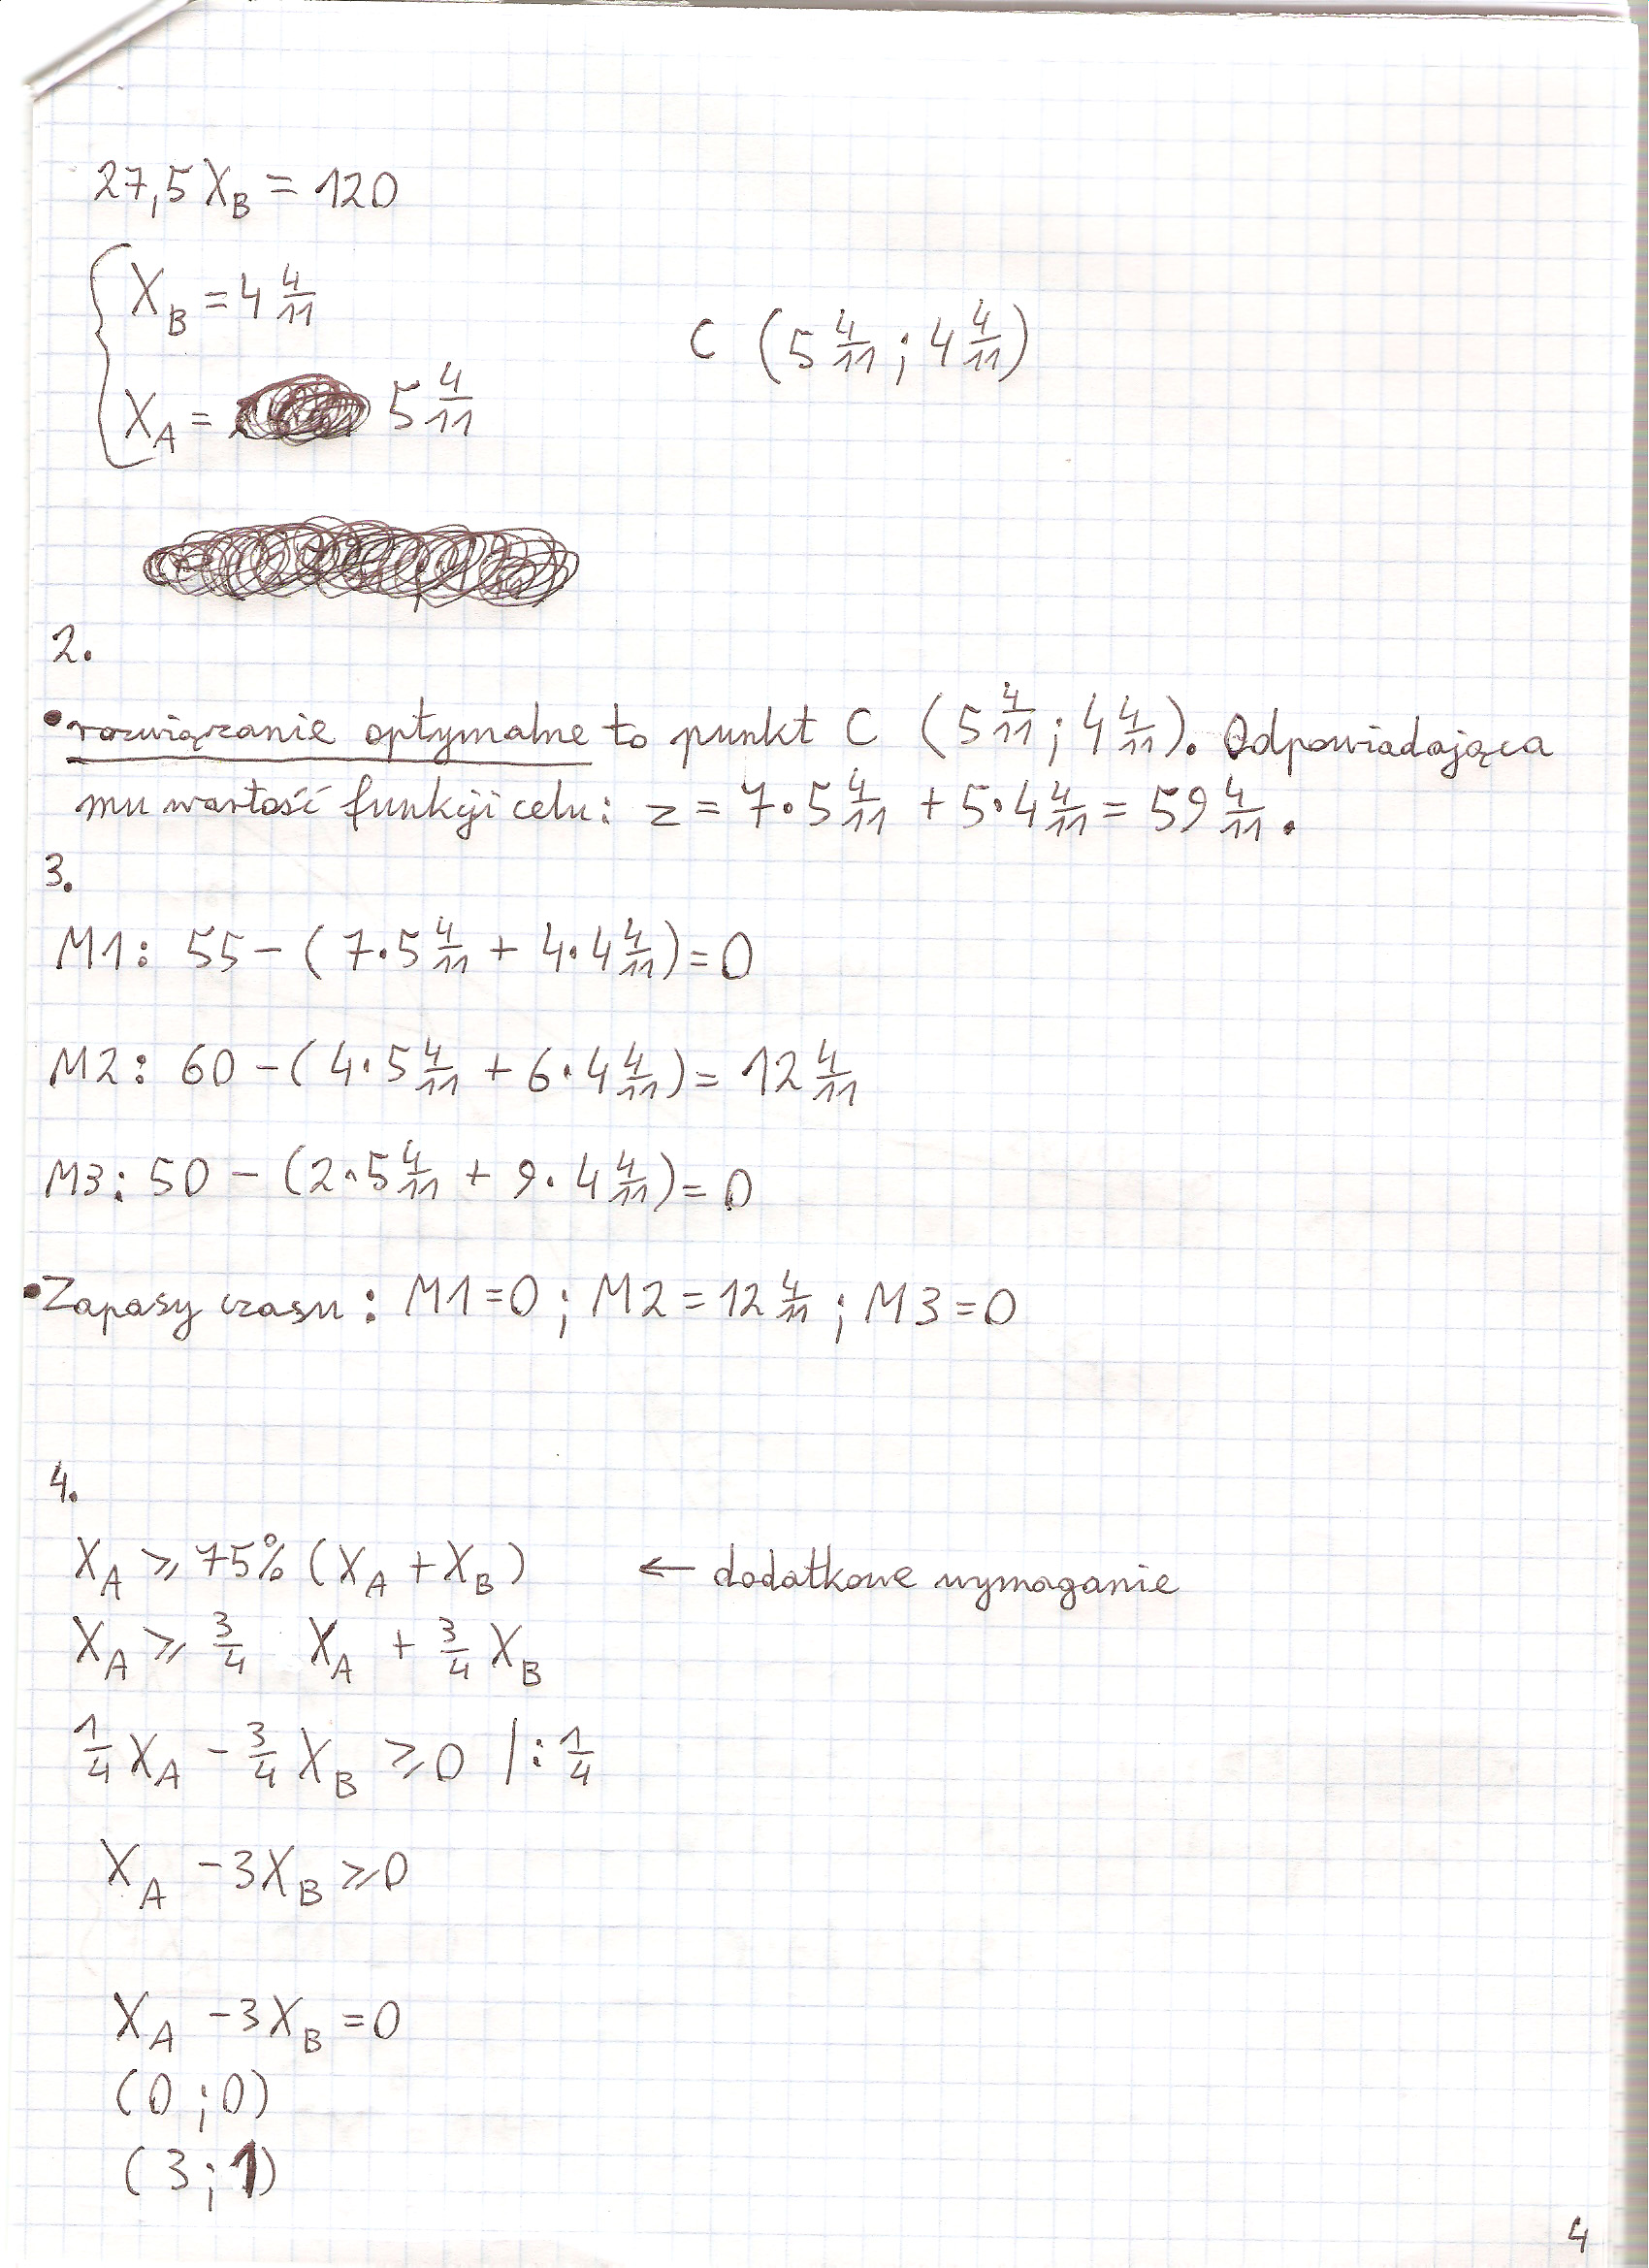 27,5 X_B = 120
X_B = 4 4/11
X_A = 5 4/11
C (5 4/11 ; 4 4/11)
2.
• rozwiązanie optymalne to punkt C (5 4/11 ; 4 4/11). Odpowiadająca
mu wartość funkcji celu: z = 7·5 4/11 + 5·4 4/11 = 59 4/11.
3.
M1: 55 - (7·5 4/11 + 4·4 4/11) = 0
M2: 60 - (4·5 4/11 + 6·4 4/11) = 12 4/11
M3: 50 - (2·5 4/11 + 9·4 4/11) = 0
• Zapasy czasu: M1=0 ; M2 = 12 4/11 ; M3=0
4.
X_A ≥ 75% (X_A + X_B) ← dodatkowe wymaganie
X_A ≥ 3/4 X_A + 3/4 X_B
1/4 X_A - 3/4 X_B ≥ 0 /: 1/4
X_A - 3X_B ≥ 0
X_A - 3X_B = 0
(0 ; 0)
(3 ; 1)
4